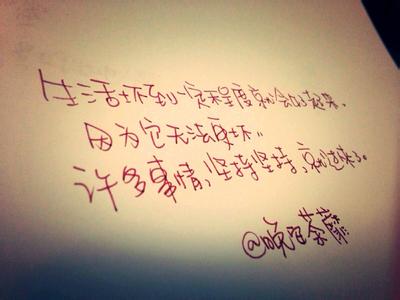 生活坏到一定程度就会好起来,
因为它无法更坏。
许多事情,坚持坚持,就过来了。
@晚安